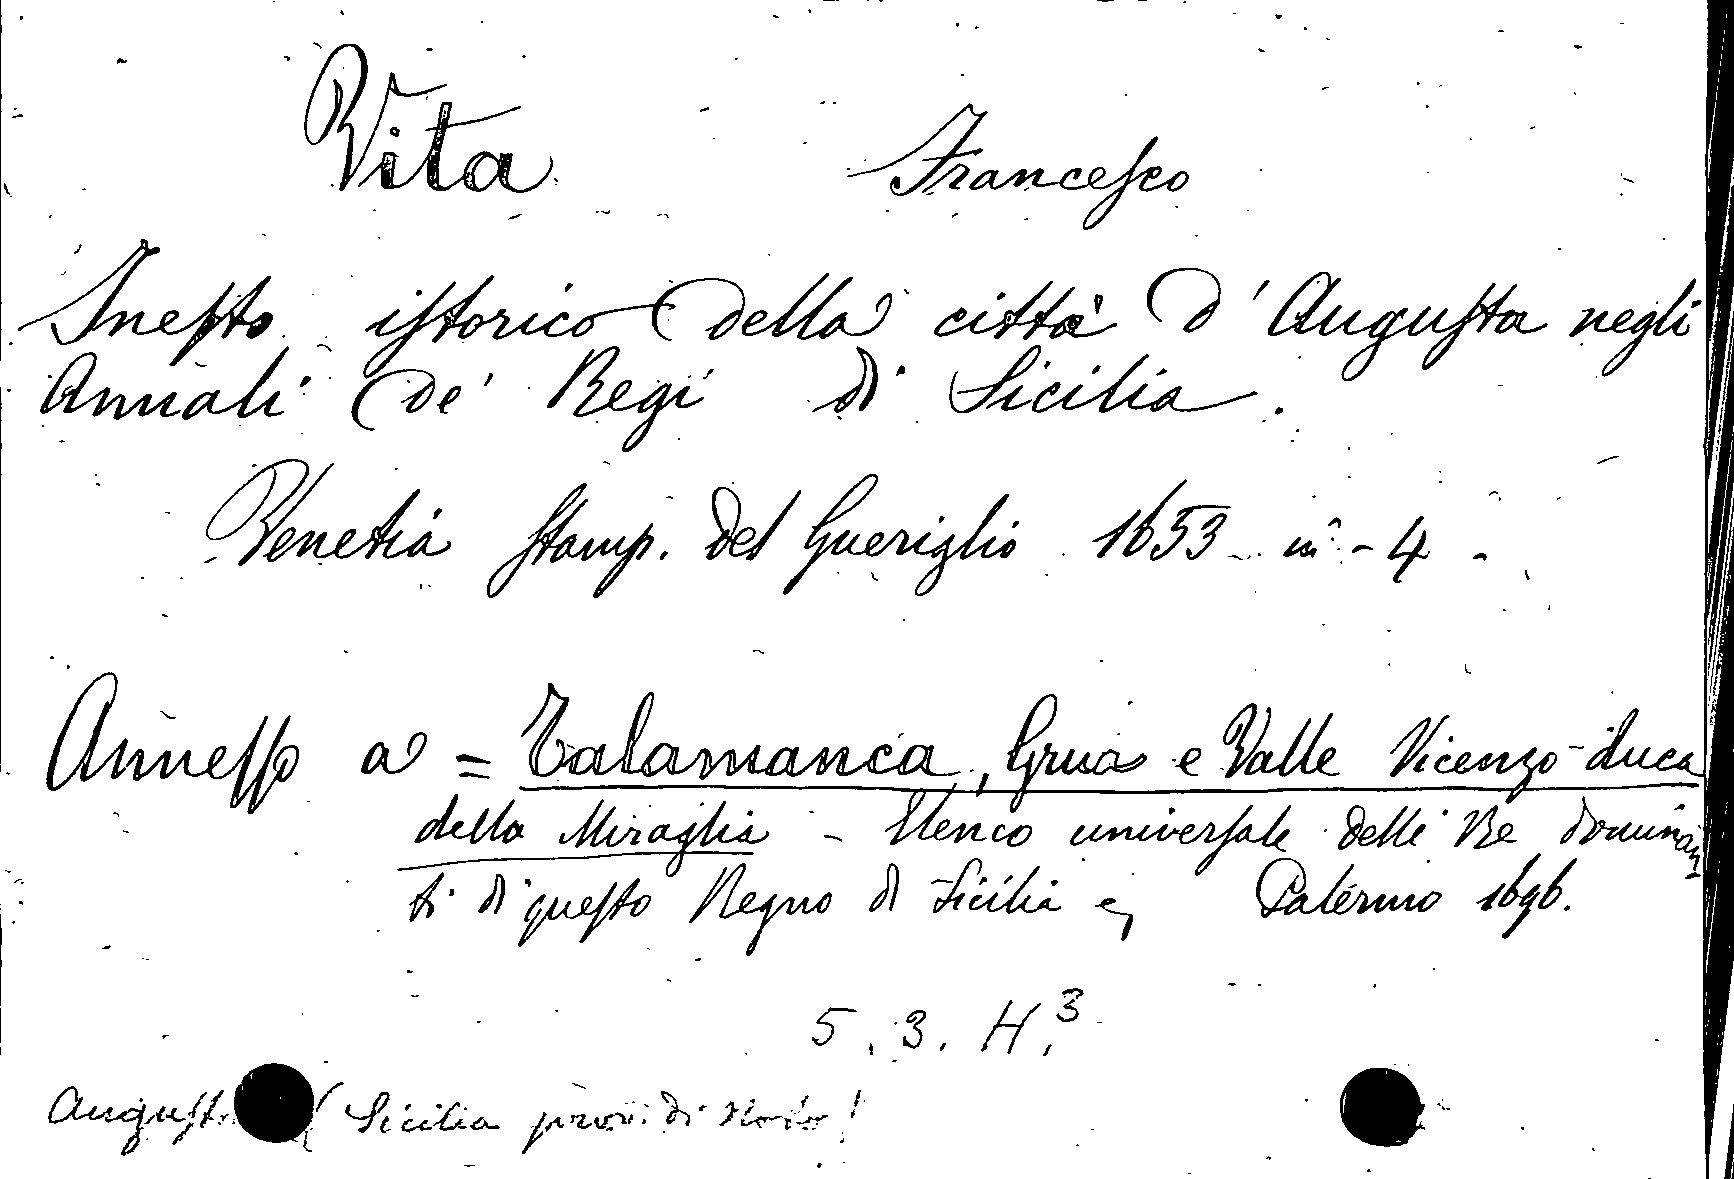 Vita Francesco
Inesto istorico della città d'Augusta negli
Annali de' Regi di Sicilia.
Venetia stamp. del Gueriglio 1653 in - 4 -
Annesso a = Talamanca, Grua e Valle Vicenzo duca
della Miraglia - Elenco universale delli Re dominan
ti di questo Regno di Sicilia Palermo 1696.
5. 3. H.3
Augusta (Sicilia prov. di Noto)